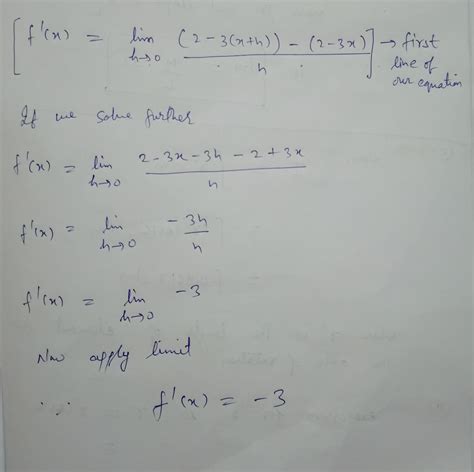 [f'(x) = lim h→0 (2-3(x+h)) - (2-3x) / h] → first line of our equation
If we solve further
f'(x) = lim h→0 2-3x-3h-2+3x / h
f'(x) = lim h→0 -3h / h
f'(x) = lim h→0 -3
Now apply limit
∴ f'(x) = -3